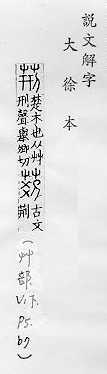 說文解字
大徐本
荆 楚木也从艸
刑聲舉卿切
古文
荆
(艸部. V.下. P5. b7)